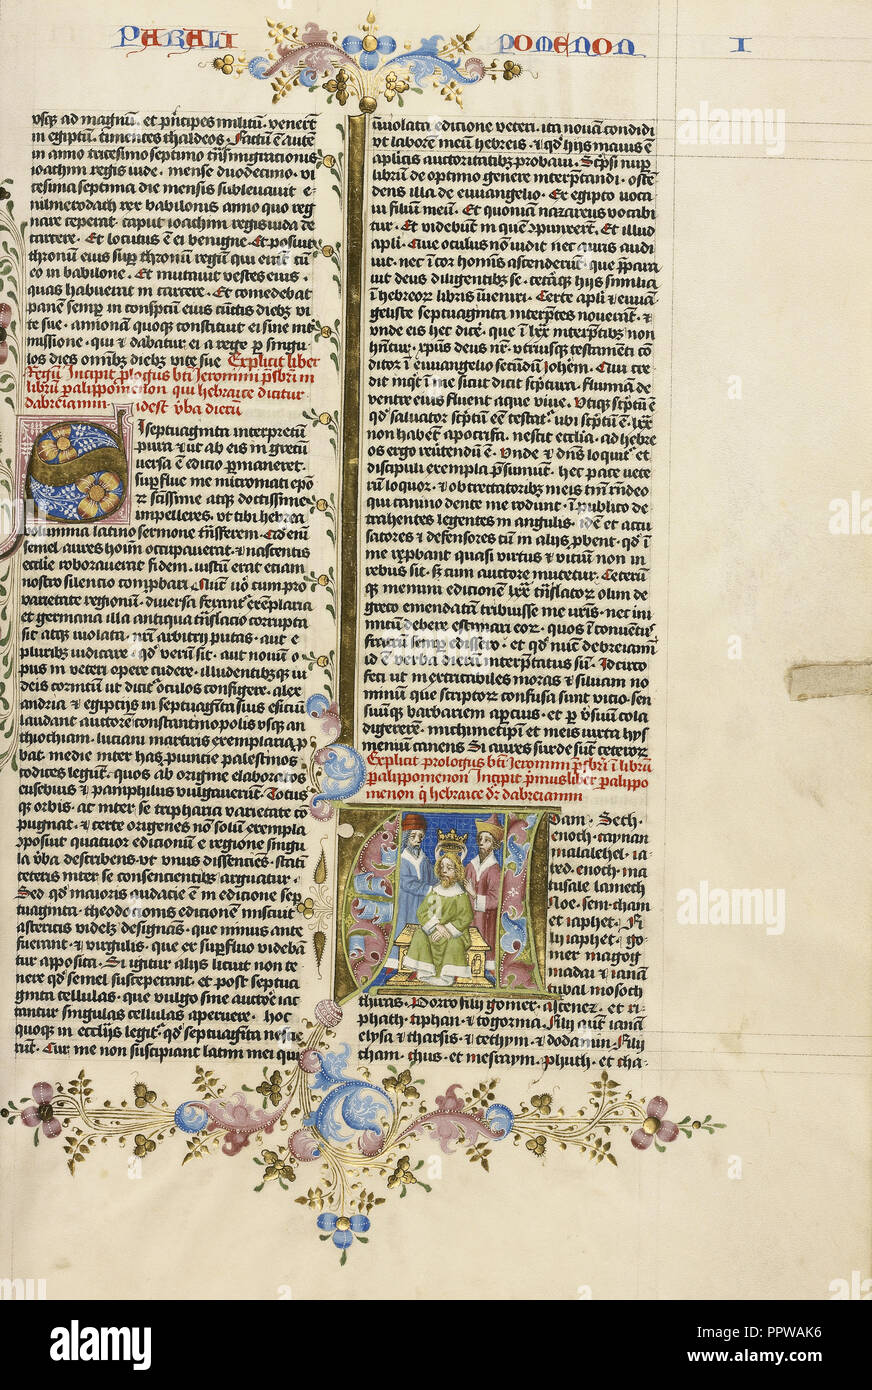 PARALI POMENON I
vsq̄ ad magnū · et pͥncipes militū · venerūt
in egiptū · timentes chaldeos · Factū ē autē
in anno tricesimo septimo trāsmigrationis
ioachim regis iude · mense duodecimo · vi
cesima septima die mensis subleuauit e
uilmerodach rex babilonis anno quo reg
nare ceperat caput ioachim regis iuda de
carcere · Et locutus ē ei benigne · Et posuit
thronū eius suꝑ thronū regū qui erāt cū
eo in babilone · Et mutauit vestes eius ·
quas habuerat in carcere · Et comedebat
panē semꝑ in conspectu eius cūctis diebꝫ vi
te sue · annonā quoqꝫ constituit ei sine inter
missione · que et dabatur ei a rege ꝑ singu
los dies omībꝫ diebꝫ vite sue Explicit liber
Regū Incipit ꝓlogus bti Jeronimi pͥsbri in
librū ꝑalippomenon qui hebraice dicitur
dabreiamin idest vba dierū
SI septuaginta interpretū
pura et ut ab eis in grecū
uersa ē editio ꝑmaneret ·
suꝑflue me mi cromati epō
ꝝ scissime atqꝫ doctissime
impelleres · ut tibi hebrea
volumina latino sermone trāsferem · Qd eni
semel aures hoīm occupauerat et nascentis
ecclie roborauerat fidem · iustū erat etiam
nostro silencio comꝓbari · Nunc uō cum pro
varietate regionū · diuersa ferant exēplaria
et germana illa antiqua trāslacio corrupta
sit atqꝫ uiolata · nri arbitrij putas · aut e
pluribꝫ iudicare · qd verū sit · aut nouū o
pus in veteri opere cudere · illudentibꝫqꝫ iu
deis cornicū ut dicit oculos configere · alex
andria et egiptus in septuagīta suis esiciū
laudant auctorē constantinopolis vsqꝫ an
thiochiam · luciani martiris exemplaria ꝓ
bat · medie inter has ꝓuincie palestinos
codices legunt · quos ab origine elaboratos
eusebius et pamphilus vulgauerūt · Totus
qꝫ orbis · ac inter se tripharia varietate co
pugnat · et certe origenes nō solū exempla
ꝯposuit quatuor edicionū e regione singu
la vba describens · vt vnus dissenciēs · statī
ceteris inter se consencientibꝫ arguatur ·
Sed qd maioris audacie ē in edicione sep
tuaginta · theodocionis edicionē miscuit
astericis videlꝫ designās · que minus ante
fuerant · et virgulis · que ex suꝑfluo videbā
tur apposita · Si igitur alijs licuit non te
nere qd semel susceperant · et post septua
ginta cellulas · que vulgo sine auctōe iac
tantur singulas cellulas aperuere · hoc
quoqꝫ in ecclijs legit · qd septuagīta nescie
rūt · Cur me non suscipiant latini mei qui
īuiolata edicione veteri · ita nouā condidi
vt laborē meū hebreis · et qd hijs maius ē
aplicis auctoritatibꝫ probaui · Scripsi nuꝑ
librū de optimo genere interpͥtandi · ostē
dens illa de euuangelio · Ex egipto voca
ui filiū meū · Et quoniā nazareus vocabi
tur · Et videbunt in quē ꝯpunxerūt · Et illud
apli · Que oculus nō uidit nec auris audi
uit · nec ī cor hominis ascenderūt · que ꝑpara
uit deus diligentibꝫ se · ceteraqꝫ hijs similia
ī hebreoꝝ libris īueniri · Certe apli et euuā
geliste septuaginta interpͥtes nouerāt · et
vnde eis hec dicē · que ī lxx interpͥtibꝫ non
hūtur · xpūs deus nr · vtriusqꝫ testamēti cō
ditor ī euuangelio secūdū johēm · Qui cre
dit inqt ī me sicut dicit scͥptura · flumīa de
ventre eius fluent aque viue · Vtiqꝫ scͥptū ē
qd saluator scͥptū eē testat · ubi scͥptū ē · lxx
non habēt · apocrifa nescit ecclia · ad hebre
os ergo reūtendū ē · Vnde et dns loquit · et
discipuli exempla pͥsumūt · hec pace vete
rū loquor · et obtrectatoribꝫ meis tm̄ rn̄deo
qui canino dente me rodunt · ī publico de
trahentes legentes in angulis · idē et accu
satores et defensores cū in alijs ꝓbent · qd ī
me reprobant quasi virtus et viciū non in
rebus sit · sꝫ cum auctore mutetur · Ceterū
qꝫ memini edicionē lxx trāslatoꝝ olim de
greco emendatā tribuisse me uris · nec ini
micū debere estimari eoꝝ · quos ī conuētu
fratrū semꝑ edissero · et qd nūc dabreiamī
id ē verba dierū interpͥtatus sū · Idcirco
feci ut inextricabiles moras et siluam no
minū que scriptoꝝ confusa sunt vicio · sen
suūqꝫ barbariem apercius · et ꝑ vsuū cola
digererē · michimetipͥi et meis iuxta hys
meniū canens Si aures surde sūt ceteroꝝ
Explicit prologus bti Jeronimi pͥsbri ī librū
ꝑalippomenon Incipit pͥmus liber ꝑalippo
menon q̄ hebraice dr dabreiamin
Adam · Seth ·
enoch · caynan
malalehel · ia
red · enoch · ma
tusale lamech
Noe · sem · cham
et iaphet · Fi
lij iaphet · go
mer magog
madai et ianā
tubal mosoch
thiras · Porro filij gomer · ascenez · et ri
phath · tiphan · et togorma · Filij autē ianā
elysa et tharsis · et cethym · et dodanin · Filij
cham · chus · et mesraym · phuth · et cha-
alamy
alamy stock photo
PPWAK6
www.alamy.com